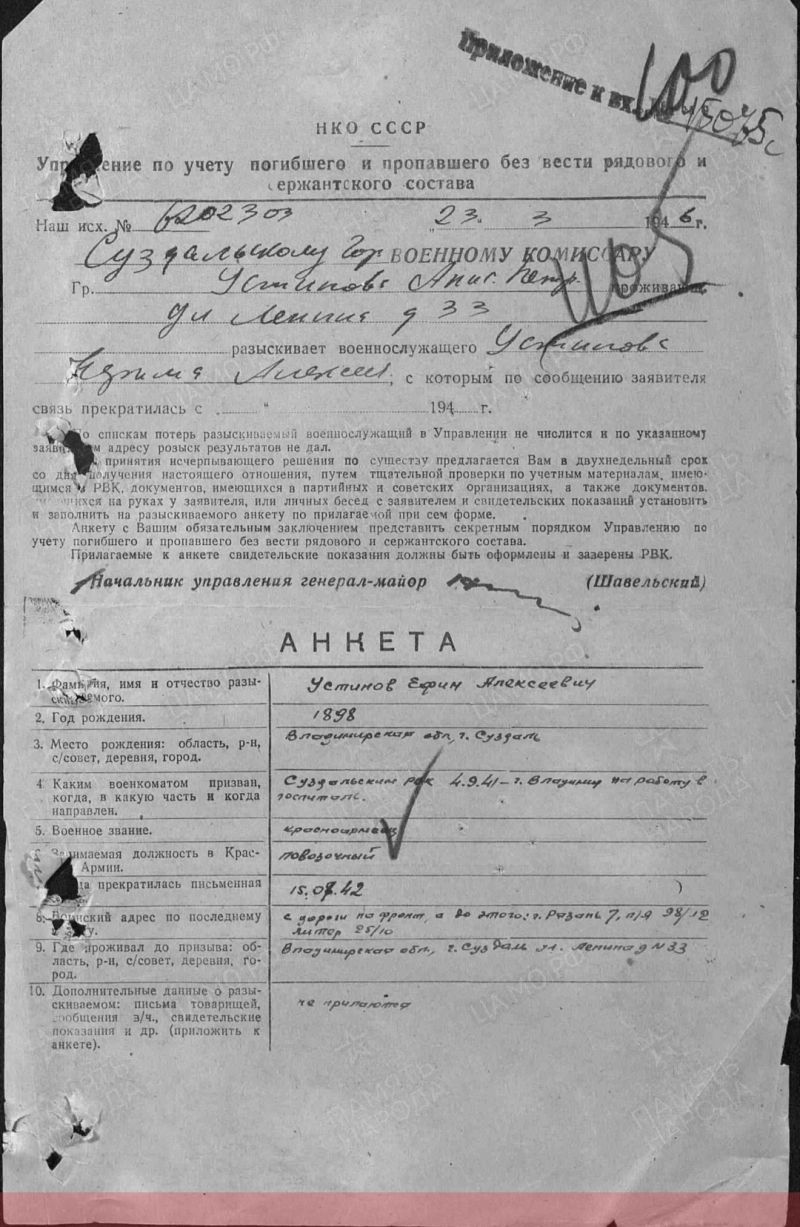 Приложение к вх. 45075с
100
НКО СССР
Управление по учету погибшего и пропавшего без вести рядового и
сержантского состава
Наш исх. № 6202303 „23“ 3 1946 г.
Суздальскому Гор ВОЕННОМУ КОМИССАРУ
Гр. Устинова Анис. Петр. проживающ.
ул Ленина д 33
разыскивает военнослужащего Устинова
Алексеев, с которым по сообщению заявителя
связь прекратилась с „ “ 194 г.
По спискам потерь разыскиваемый военнослужащий в Управлении не числится и по указанному
заявителем адресу розыск результатов не дал.
принятия исчерпывающего решения по существу предлагается Вам в двухнедельный срок
со дня получения настоящего отношения, путем тщательной проверки по учетным материалам, имею-
щимся в РВК, документов, имеющихся в партийных и советских организациях, а также документов.
имеющихся на руках у заявителя, или личных бесед с заявителем и свидетельских показаний установить
и заполнить на разыскиваемого анкету по прилагаемой при сем форме.
Анкету с Вашим обязательным заключением представить секретным порядком Управлению по
учету погибшего и пропавшего без вести рядового и сержантского состава.
Прилагаемые к анкете свидетельские показания должны быть оформлены и заверены РВК.
Начальник управления генерал-майор (Шавельский)
АНКЕТА
1. Фамилия, имя и отчество разы-
скиваемого.
Устинов Ефим Алексеевич
2. Год рождения.
1898
3. Место рождения: область, р-н,
с/совет, деревня, город.
Владимирская обл, г. Суздаль
4 Каким военкоматом призван,
когда, в какую часть и когда
направлен.
Суздальским РВК 4.9.41 – г. Владимир на работу в
госпиталь.
5. Военное звание.
красноармеец
Занимаемая должность в Крас-
Армии.
повозочный
прекратилась письменная
15.07.42
8. Воинский адрес по последнему
с дороги на фронт, а до этого: г. Рязань 7, п/я 98/12
литер 25/10
9. Где проживал до призыва: об-
ласть, р-н, с/совет, деревня, го-
род.
Владимирская обл., г. Суздаль ул. Ленина д № 33
10. Дополнительные данные о разы-
скиваемом: письма товарищей,
сообщения з/ч., свидетельские
показания и др. (приложить к
анкете).
не прилагаются
ПАМЯТЬ
НАРОДА